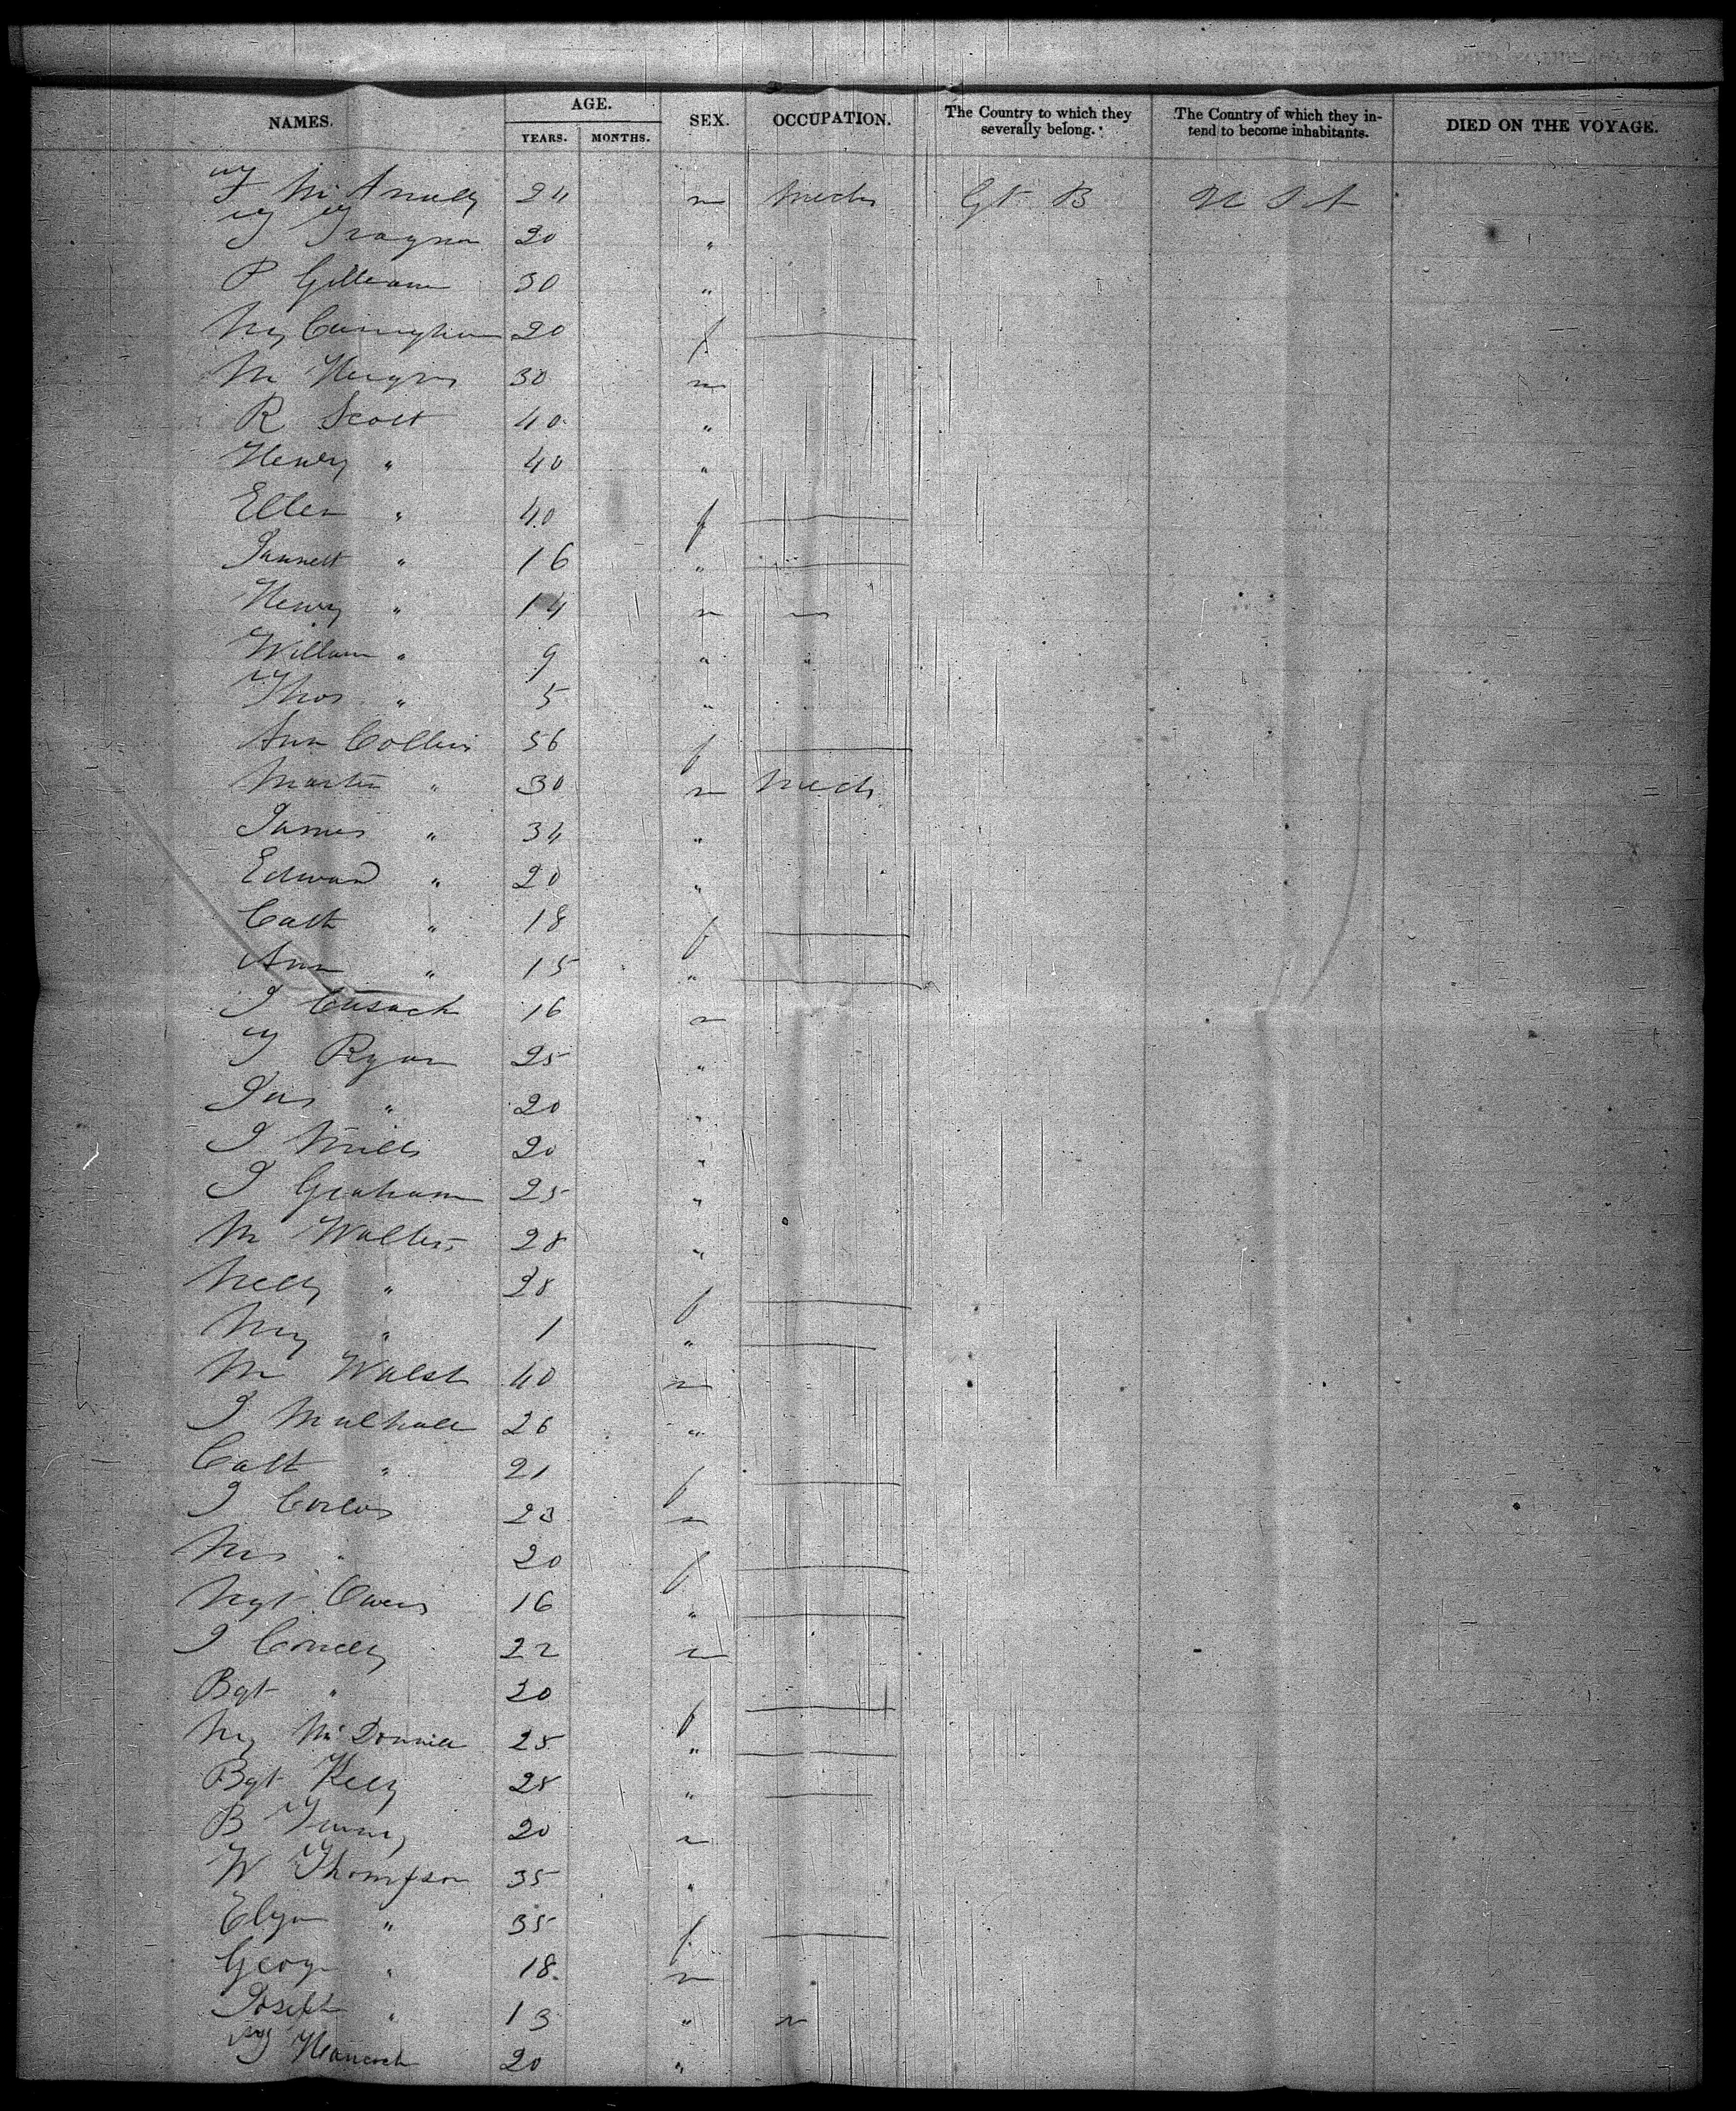 NAMES. AGE. YEARS. MONTHS. SEX. OCCUPATION. The Country to which they severally belong. The Country of which they intend to become inhabitants. DIED ON THE VOYAGE.
T McAnally 24 m Mech Gt B U S A
T 20 "
P 30 "
My Cuningham 20 f
M 30 m
R Scott 40 "
Henry " 40 "
Ellen " 40 f
Jannett " 16 "
Henry " 14 m
William " 9 "
Thos " 5 "
Ann Collins 56 f
Martin " 30 m Mech
James " 34 "
Edward " 20 "
Cath " 18 f
Ann " 15 "
J Cusack 16 m
T Ryan 25 "
Jas " 20 "
J Mills 20 "
J Graham 25 "
M Walters 28 "
Nelly " 28 f
My " 1 "
M Walsh 40 m
J Mulhall 26 "
Cath " 21 f
J 23 m
Mrs " 20 f
Mgt Owens 16 "
J Conelly 22 m
Bgt " 20 f
My McDonnell 25 "
Bgt Kelly 28 "
B 20 m
W Thompson 35 "
Eliza " 35 f
George " 18 m
Joseph " 13 "
T Hancock 20 "